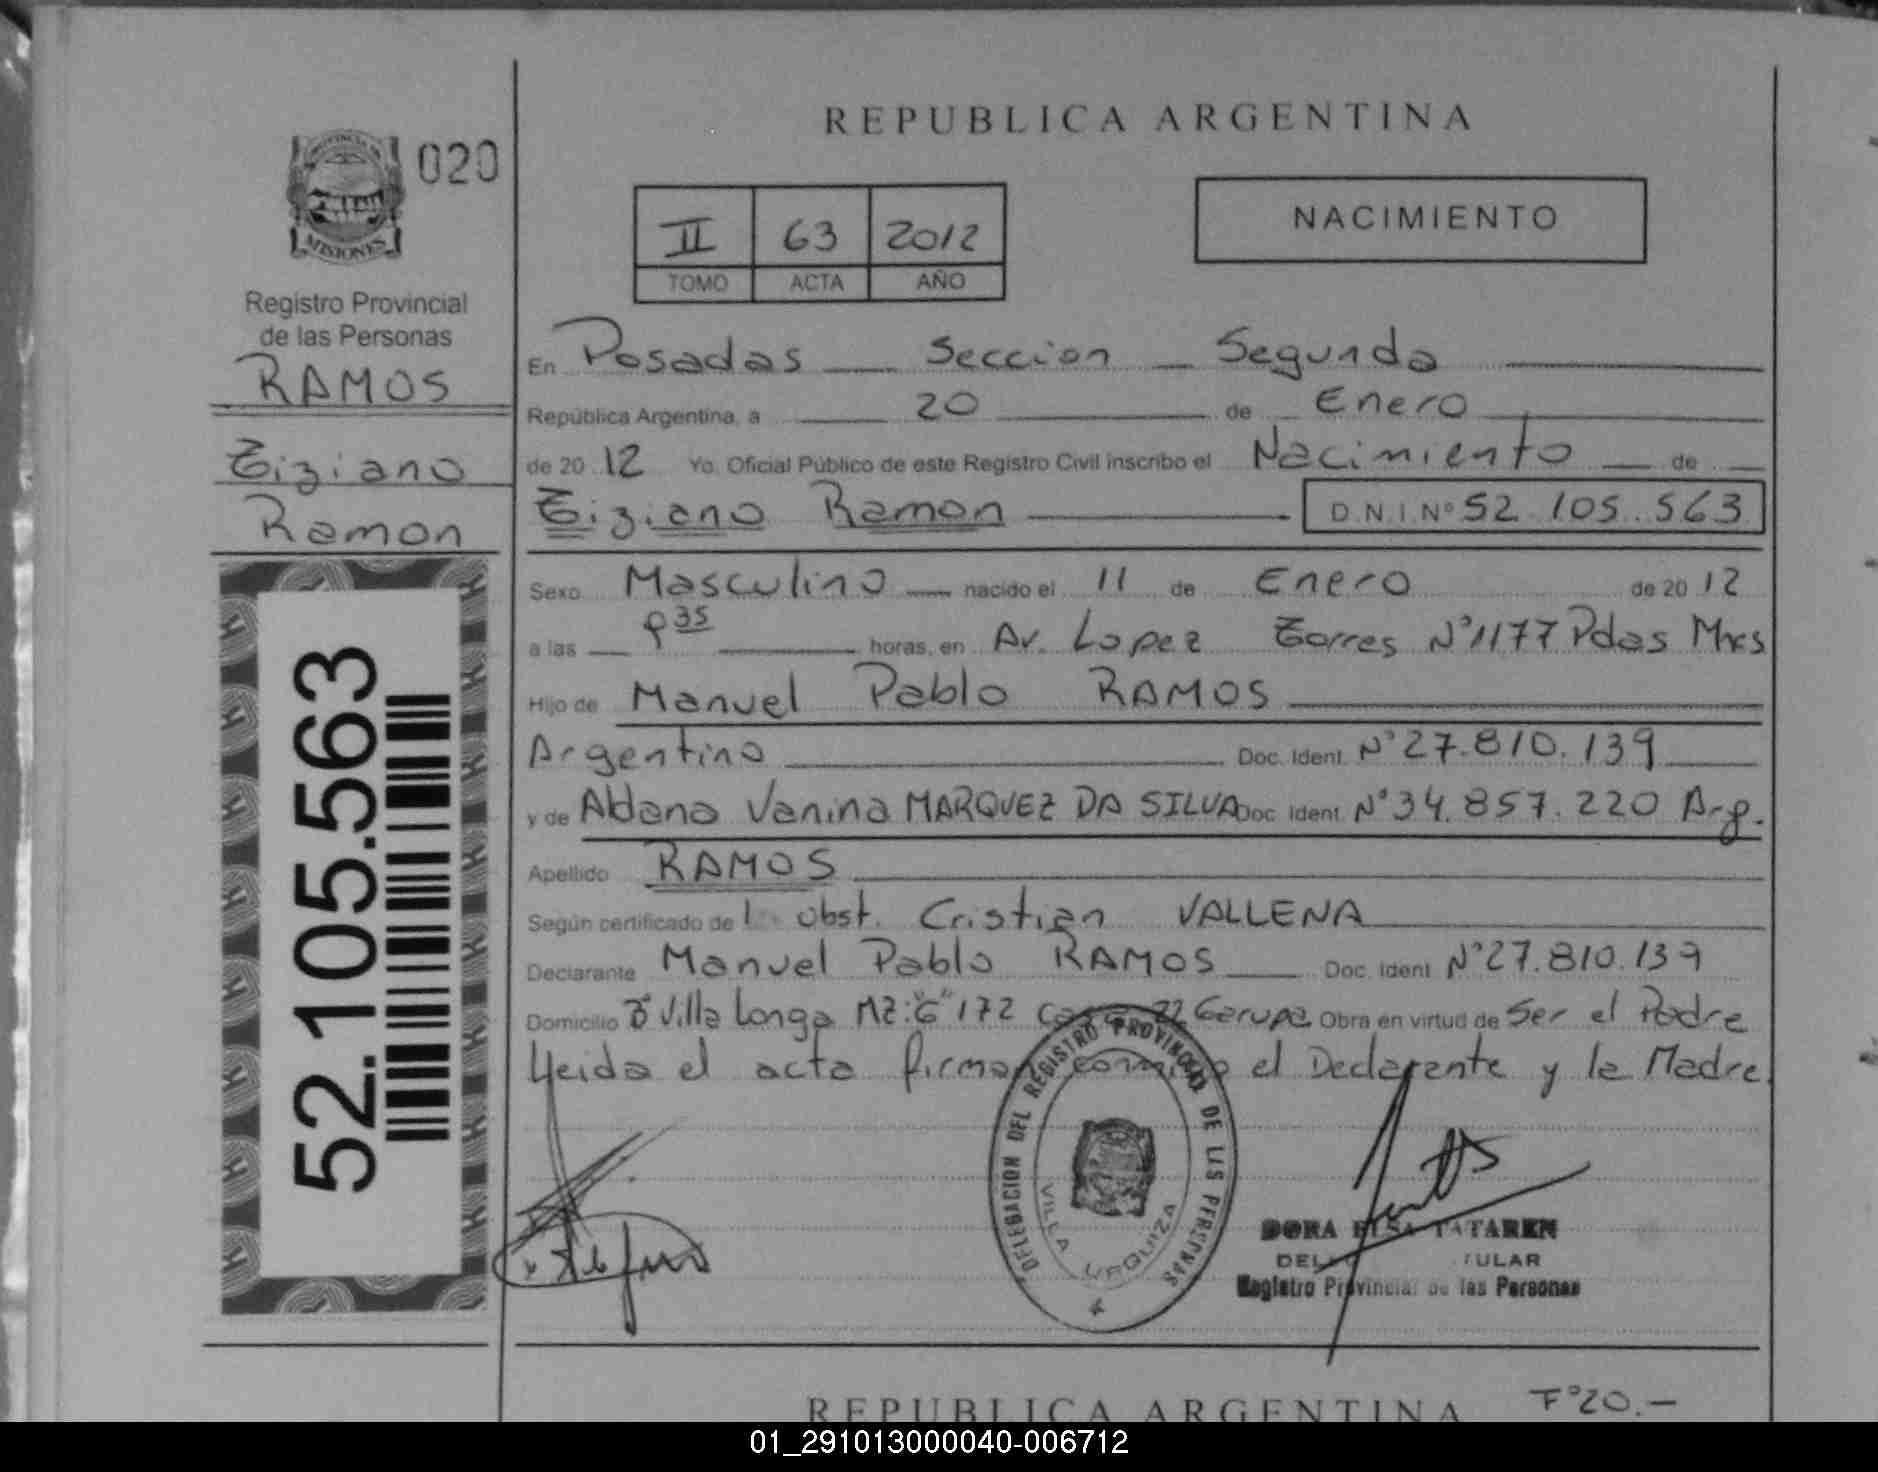 PROVINCIA DE
MISIONES
020
Registro Provincial
de las Personas
RAMOS
Tiziano
Ramon
52.105.563
REPUBLICA ARGENTINA
II 63 2012
TOMO ACTA AÑO
NACIMIENTO
En Posadas Seccion Segunda
República Argentina, a 20 de Enero
de 20 12 Yo, Oficial Público de este Registro Civil inscribo el Nacimiento de
Tiziano Ramon D.N.I.Nº 52.105.563
Sexo Masculino nacido el 11 de Enero de 20 12
a las 9 35 horas, en Av. Lopez Torres Nº1177 Pdas Mnes
Hijo de Manuel Pablo RAMOS
Argentino Doc. Ident. Nº 27.810.139
y de Aldana Vanina MARQUEZ DA SILVA Doc. Ident. Nº 34.857.220 Arg.
Apellido RAMOS
Según certificado de Obst. Cristian VALLENA
Declarante Manuel Pablo RAMOS Doc. Ident. Nº27.810.139
Domicilio Bº Villa Longa MZ: "G" 172 Garupa Obra en virtud de Ser el Padre
Leida el acta firman conmigo el Declarante y la Madre.
DELEGACION DEL REGISTRO PROVINCIAL DE LAS PERSONAS
VILLA URQUIZA
DORA ELSA TATAREN
Registro Provincial de las Personas
REPUBLICA ARGENTINA Fº20.-
01_291013000040-006712